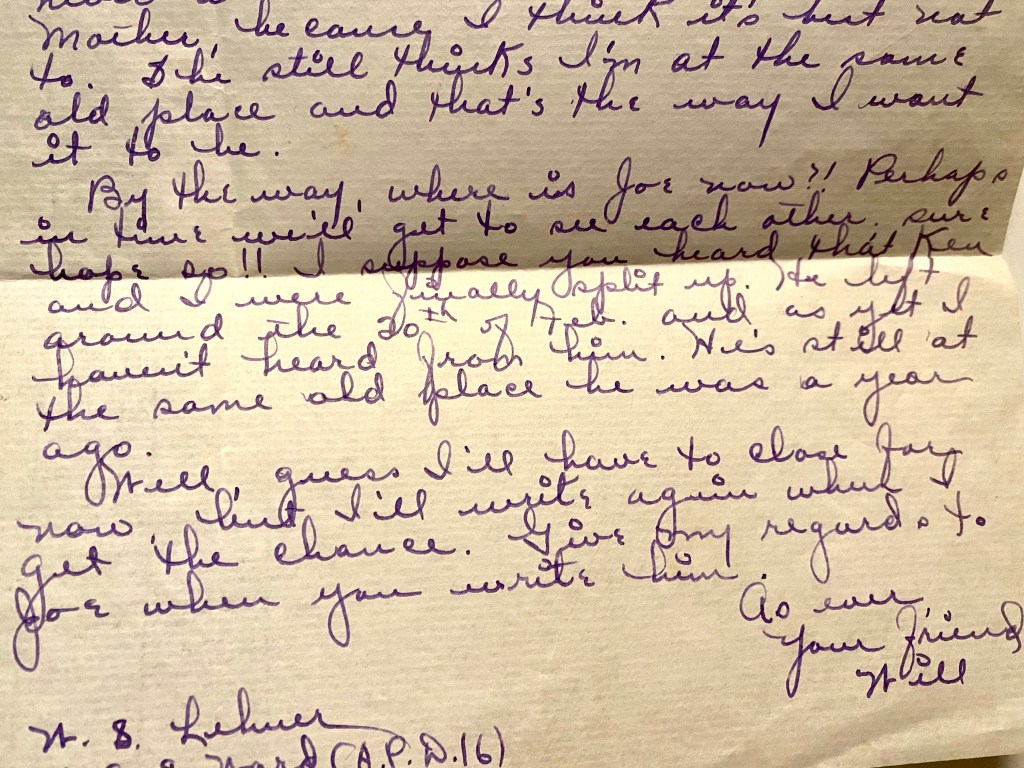 Mother, because I think it's but not
to. She still thinks I'm at the same
old place and that's the way I want
it to be.
By the way, where is Joe now?! Perhaps
in time we'll get to see each other, sure
hope so!! I suppose you heard that Ken
and I were finally split up. He left
around the 20th of Feb. and as yet I
haven't heard from him. He's still at
the same old place he was a year
ago.
Well, guess I'll have to close for
now, but I'll write again when I
get the chance. Give my regards to
Joe when you write him.
As ever,
Your friend
Will
W. S. Lehner
Ward (A.P.D.16)